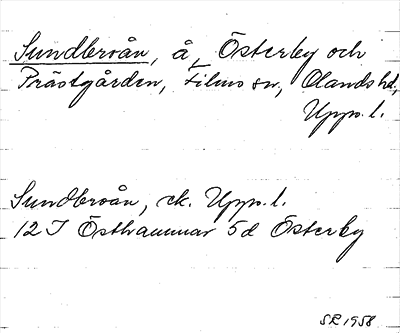 Sundbroån, å, Österby och
Prästgården, Films sn, Olands hd,
Upps. l.
Sundbroån, ek. Upps. l.
12 I Östhammar 5d Österby
SR 1958